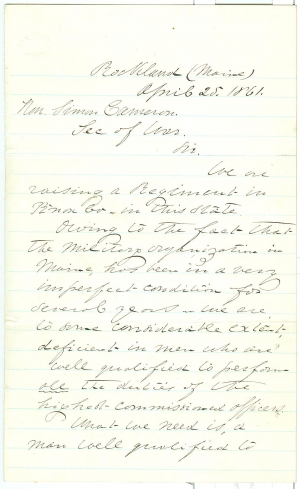 Rockland (Maine)
April 25. 1861.
Hon. Simon Cameron.
Sec of War.
Sir.
We are
raising a Regiment in
Knox Co - in this State.
Owing to the fact that
the Military organization in
Maine, has been in a very
imperfect condition for
several years - we are,
to some considerable extent,
deficient in men who are
well qualified to perform
all the duties of the
highest commissioned officers.
What we need is, a
man well qualified to